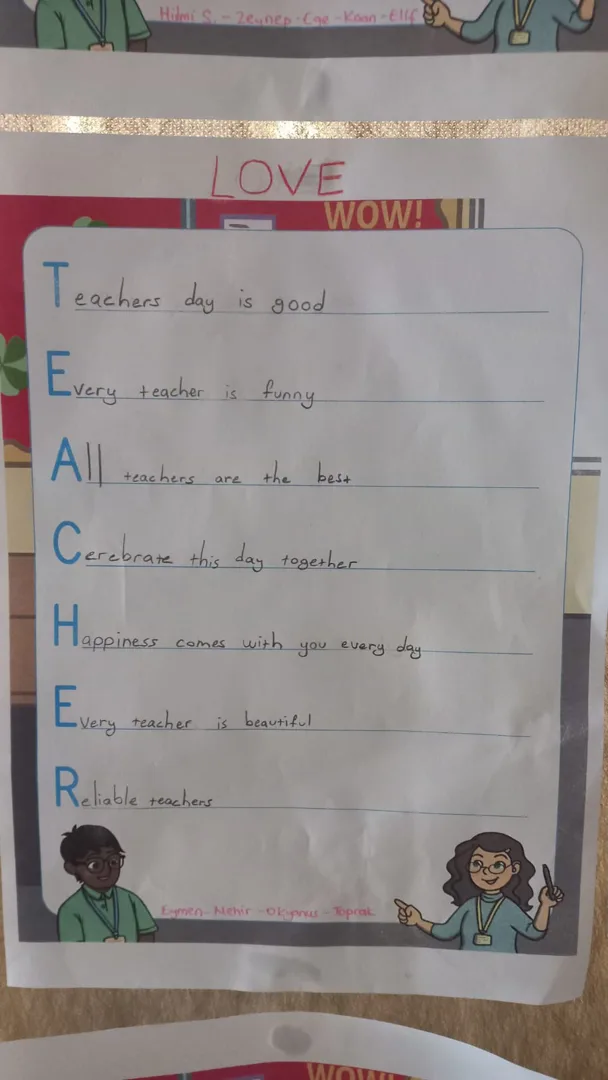 Hilmi S. - Zeynep - Ege - Kaan - Elif
LOVE
WOW!
Teachers day is good
Every teacher is funny
All teachers are the best
Cerebrate this day together
Happiness comes with you every day
Every teacher is beautiful
Reliable teachers
Eymen - Nehir - Okyanus - Toprak
WOW!